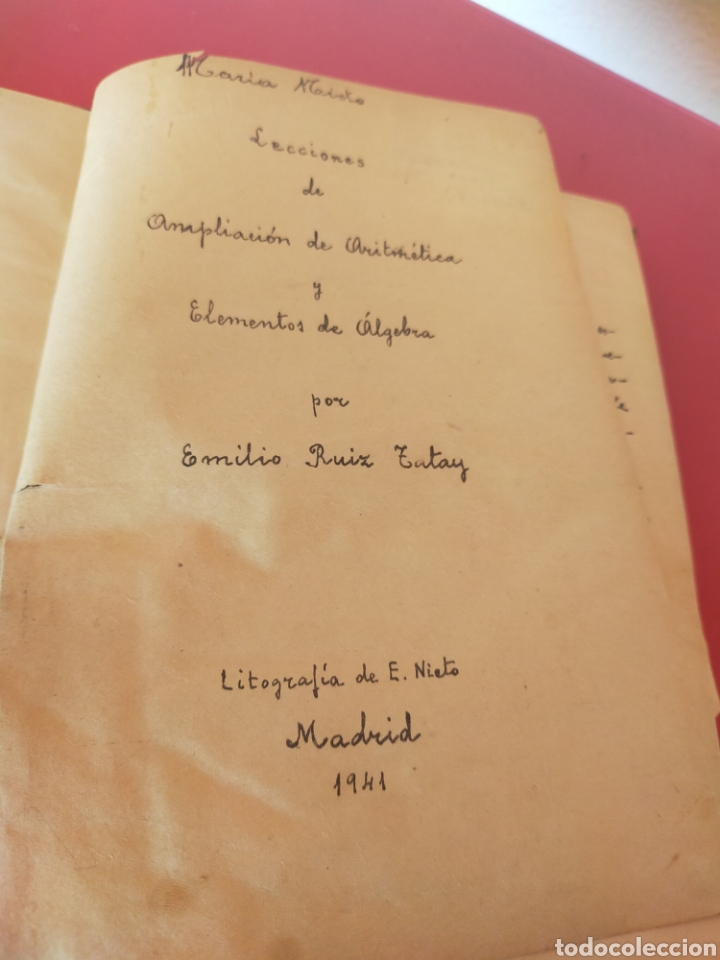 Maria Nieto
Lecciones
de
Ampliación de Aritmética
y
Elementos de Álgebra
por
Emilio Ruiz Tatay
Litografía de E. Nieto
Madrid
1941
todocoleccion